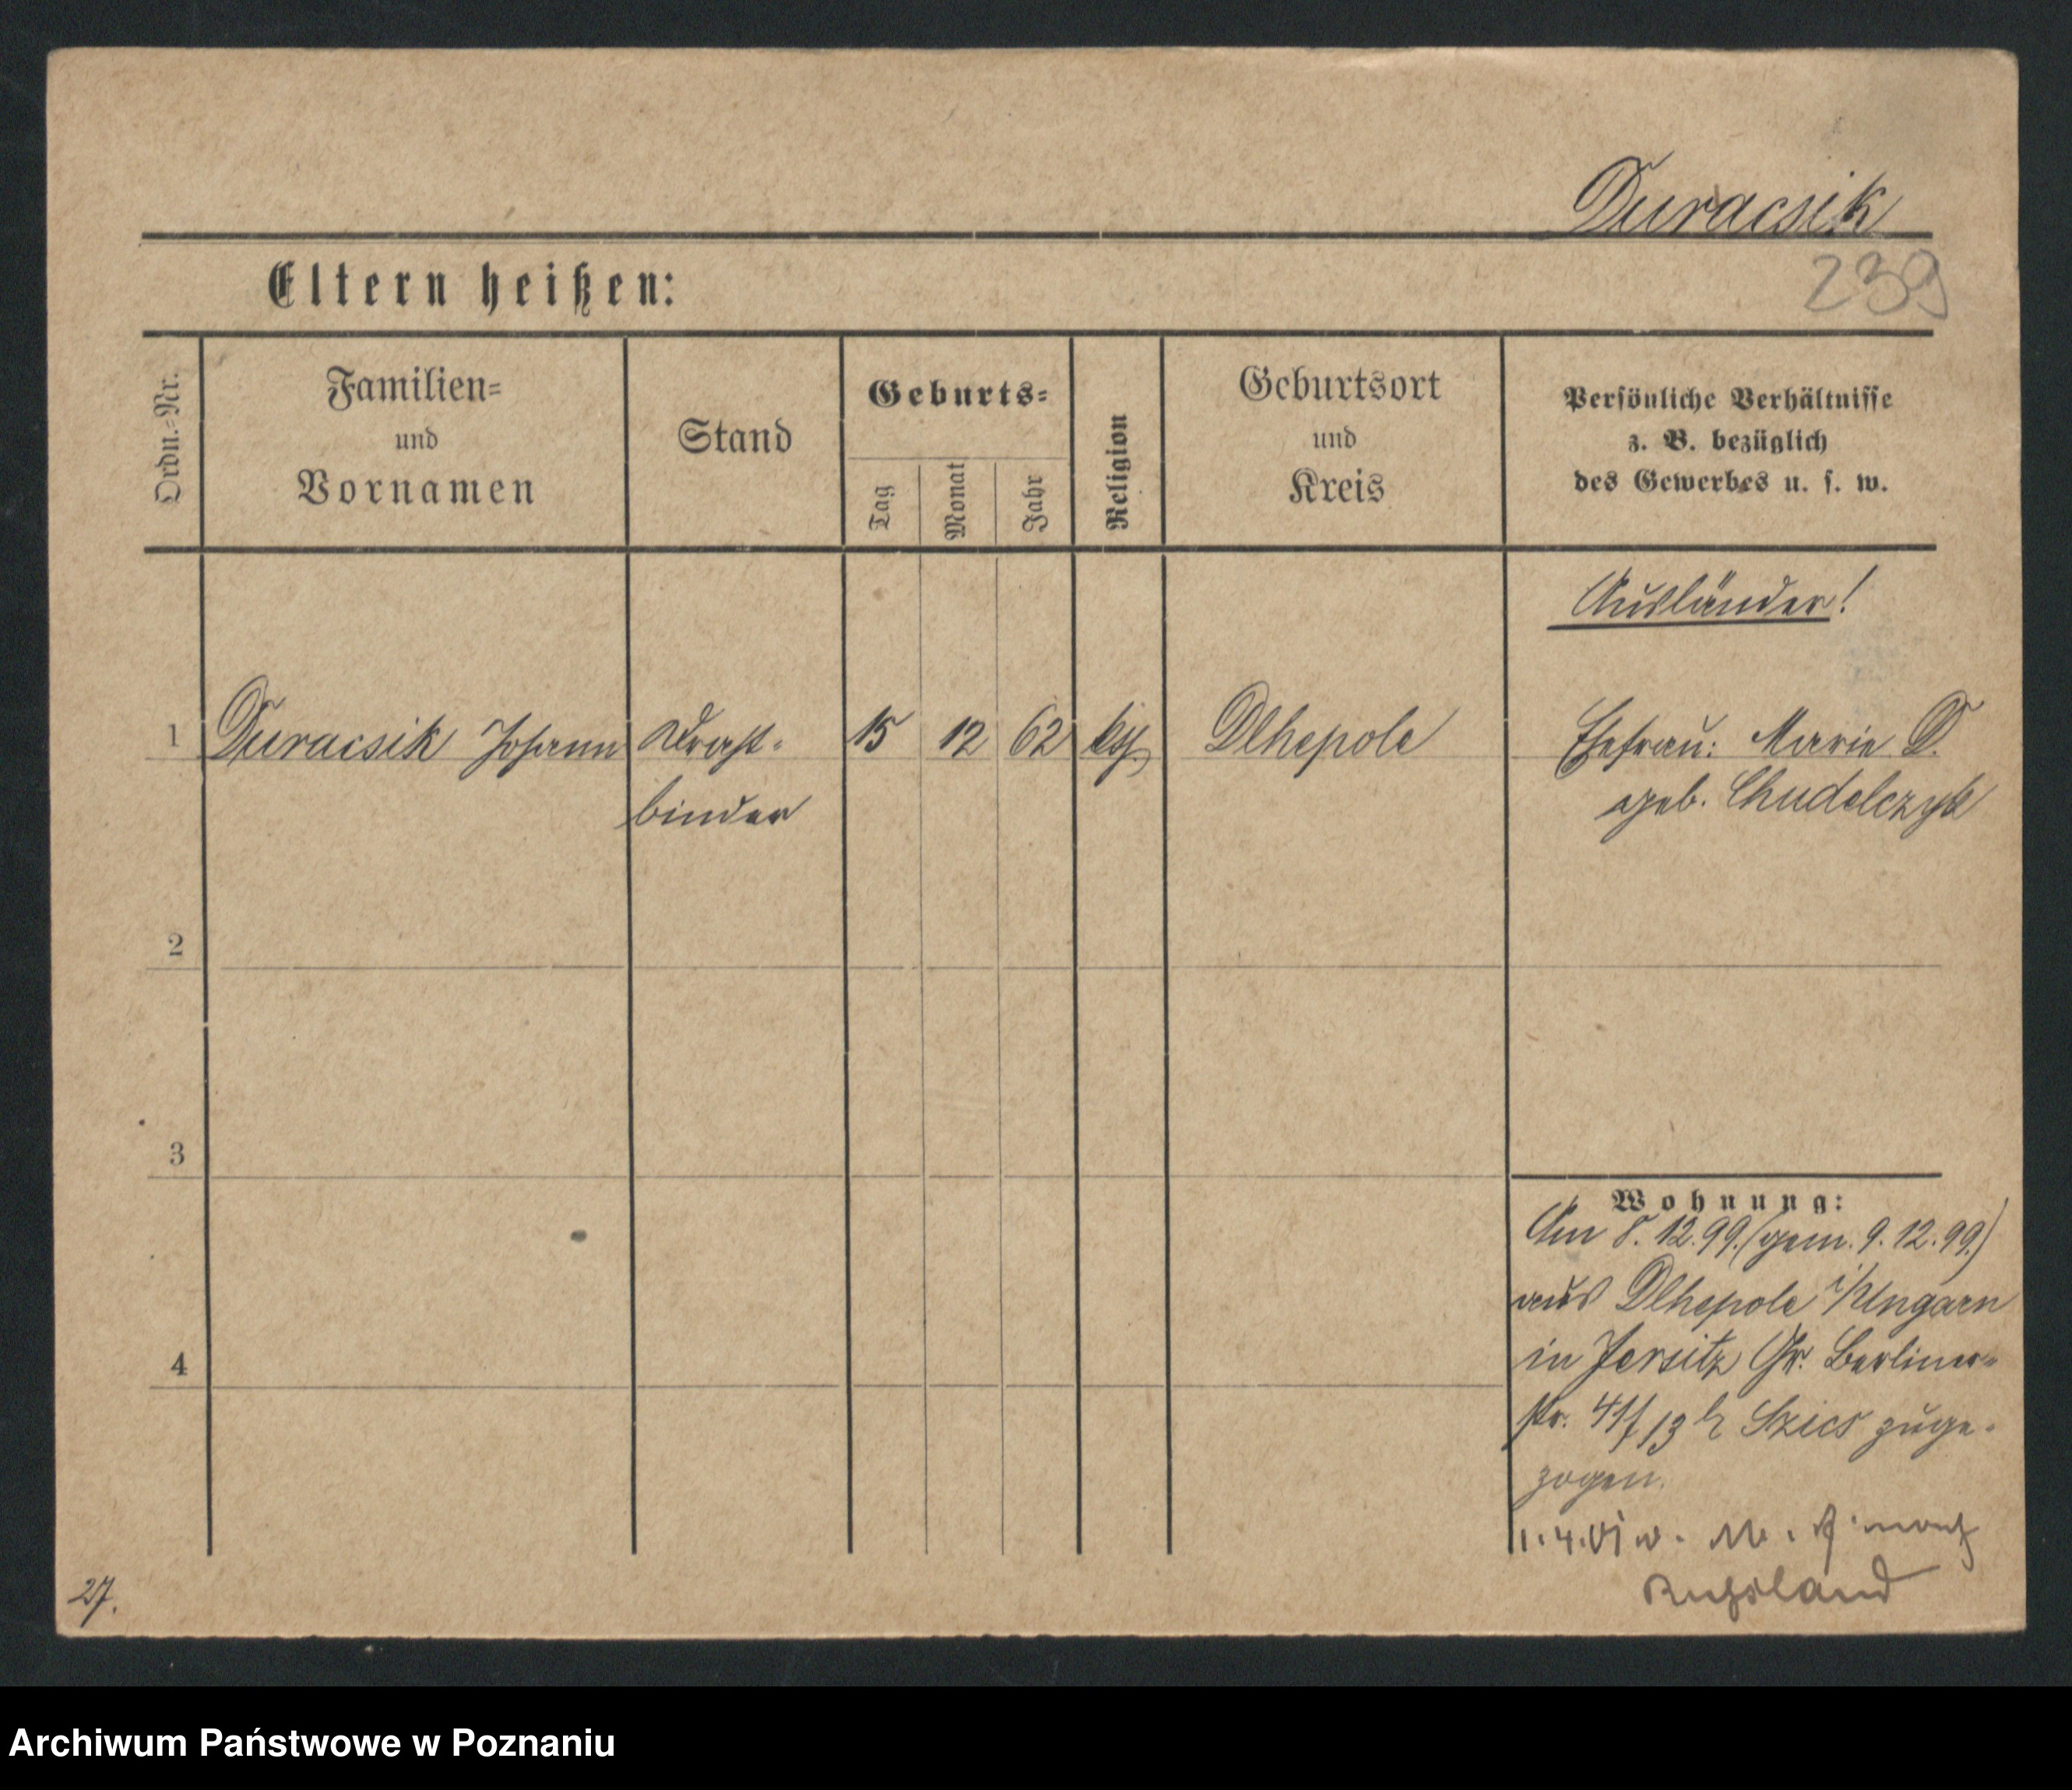 Duracsik
239
Eltern heißen:
Ordn.-Nr.
Familien-
und
Vornamen
Stand
Geburts-
Tag
Monat
Jahr
Religion
Geburtsort
und
Kreis
Persönliche Verhältnisse
z. B. bezüglich
des Gewerbes u. s. w.
Ausländer!
1 Duracsik Johann Draht- 15 12 62 Dlhepole Ehefrau: Marie D.
binder geb. Chudelczyk
2
3
4
Wohnung:
Am 8.12.99. (gem. 9.12.99.)
aus Dlhepole i/Ungarn
in Jersitz Gr. Berliner-
str. 41/13 b Szics zuge-
zogen.
1.4.01 w.
Russland
27.
Archiwum Państwowe w Poznaniu